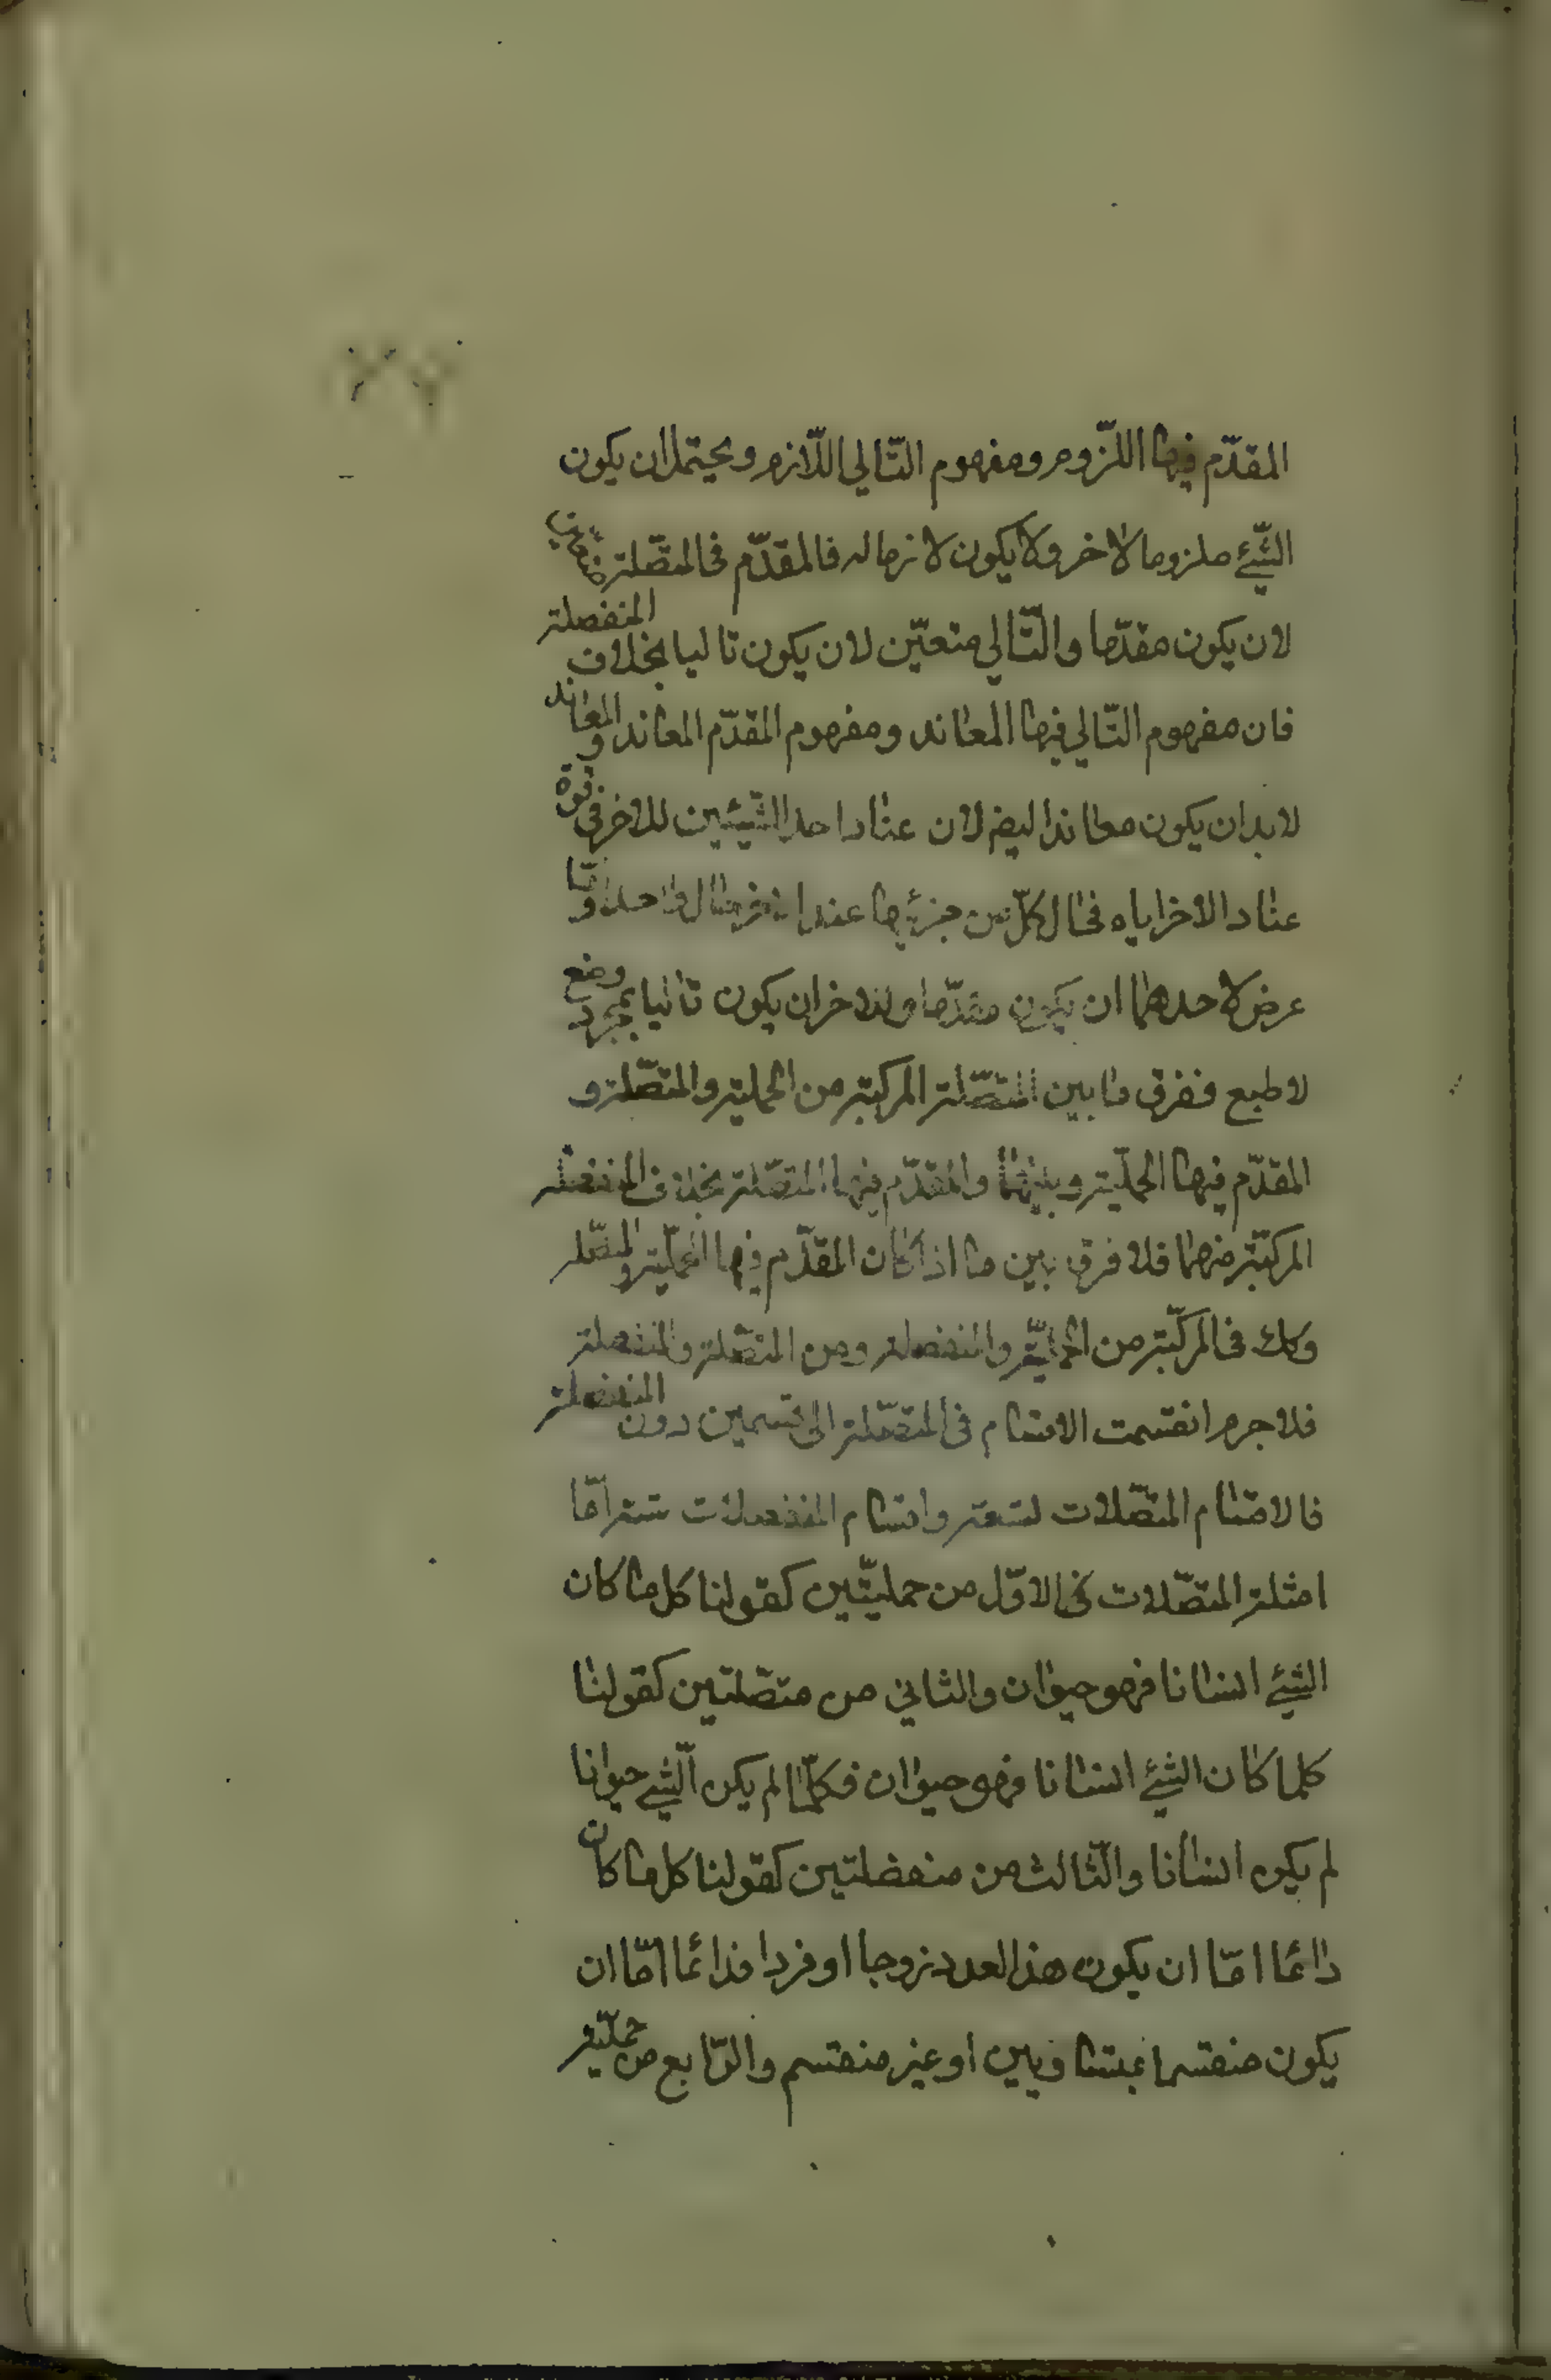 المقدّم فيها اللّزوم ومفهوم التّالي اللّازم ويحتمل ان يكون
الشّيئ ملزوما لاخر ولا يكون لازما له فالمقدّم فى المتّصلة متعيّن
لان يكون مقدّما والتّالي متعيّن لان يكون تاليا بخلاف المنفصلة
فان مفهوم التّالي فيها المعاند ومفهوم المقدّم المعاند و المعاند
لا بد ان يكون معاندا ايضا لان عناد احد الشّيئين للاخر فى قوة
عناد الاخر اياه فحال كلّ من جزئيها عند الاخر حال واحد وانّما
عرض لاحدهما ان يكون مقدّما وللاخر ان يكون تاليا بمجرد وضع
لا طبع ففرق ما بين المتّصلة المركبة من الحملية والمتّصلة و
المقدّم فيها الحمليّة وبينها والمقدّم فيها المتّصلة بخلاف المنفصلة
المركبّة منهما فلا فرق بين ما اذا كان المقدّم فيها الحمليّة والمتّصلة
وكك فى المركّبة من الحمليّة والمنفصلة ومن المتّصلة والمنفصلة
فلا جرم انقسمت الاقسام فى المتّصلة الى قسمين دون المنفصلة
فالاقسام المتّصلات تسعة واقسام المنفصلات ستة امّا
امثلة المتّصلات فالاوّل من حمليّتين كقولنا كل ما كان
الشيئ انسانا فهو حيوان والثاني من متصّلتين كقولنا
كلما كان الشيئ انسانا فهو حيوان فكلّما لم يكن الّشيئ حيوانا
لم يكن انسانا والثّالث من منفصلتين كقولنا كل ما كان
دائما امّا ان يكون هذا العدد زوجا او فردا فدائما امّا ان
يكون منقسما بمتساويين او غير منقسم والرّابع من حمليّة و